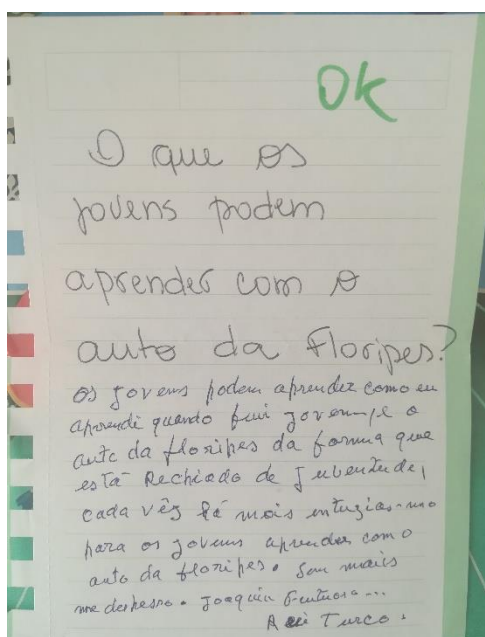 Ok
O que os
jovens podem
aprender com o
auto da Floripes?
Os jovens podem aprender como eu
aprendi quando fui jovem, e o
auto da floripes da forma que
está Rechiado de Jubentude,
cada vês há mais entuzias-mo
para os jovens aprender com o
auto da floripes. Sem mais
me despesso. Joaquin ...
Rei Turco.